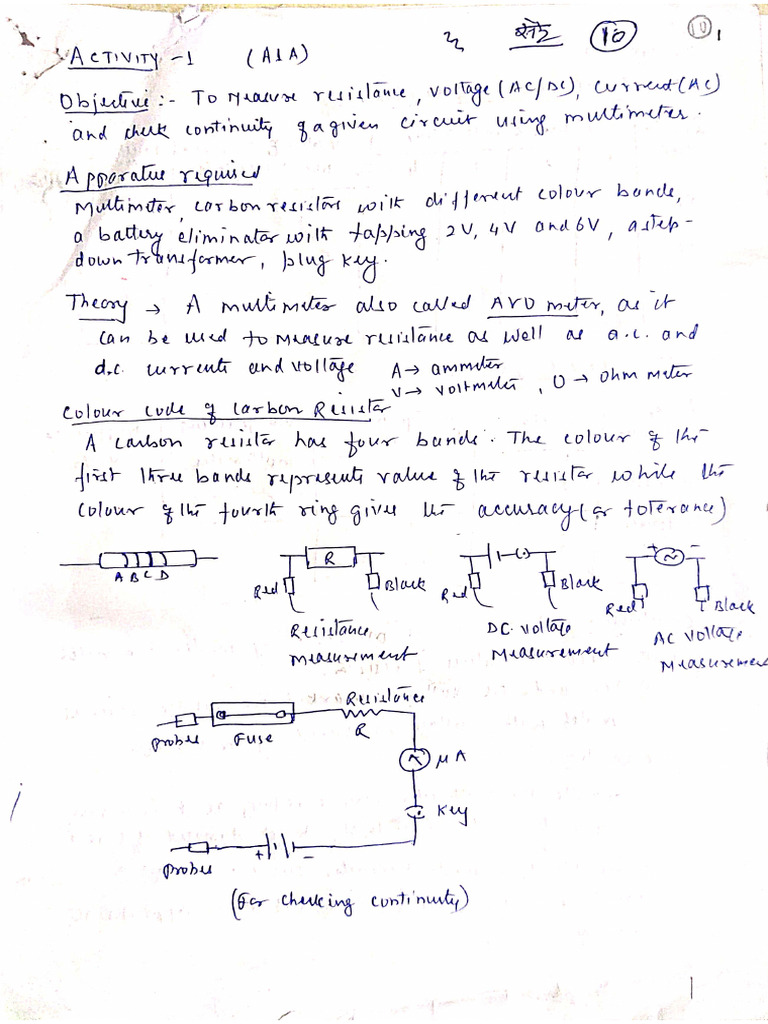 10
10 1
ACTIVITY -1 (A1A)
Objective :- To Measure resistance, voltage (AC/DC), current (AC)
and check continuity of a given circuit using multimeter.
Apparatus required
Multimeter, carbon resistors with different colour bands,
a battery eliminator with tapping 2V, 4V and 6V, a step-
down transformer, plug key.
Theory → A multimeter also called AVO meter, as it
can be used to measure resistance as well as a.c. and
d.c. currents and voltage A → ammeter
V → voltmeter, O → ohm meter
Colour code of Carbon Resistor
A carbon resistor has four bands. The colour of the
first three bands represents value of the resistor while the
colour of the fourth ring gives the accuracy (or tolerance)
A B C D
R
Red Black
Resistance
Measurement
Red Black
DC. voltage
Measurement
+ ~ -
Red Black
AC voltage
Measurement
Resistance
R
Probes Fuse
A μA
Key
+ -
Probes
(For checking continuity)